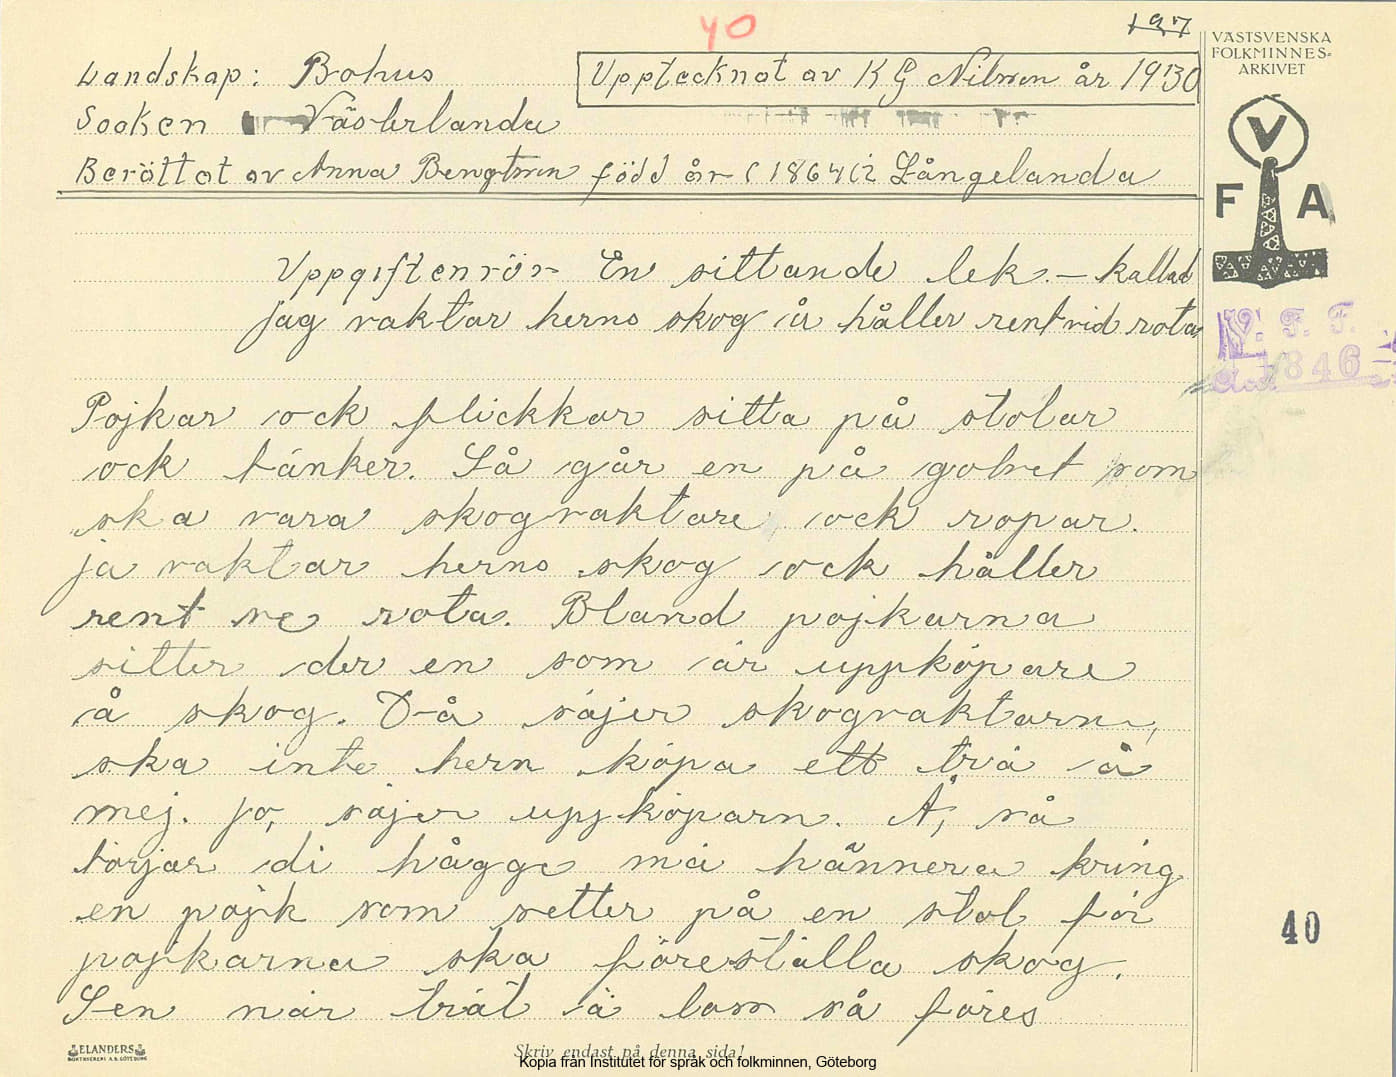 40
197
VÄSTSVENSKA
FOLKMINNES-
ARKIVET
Landskap: Bohus
Upptecknat av K G Nilsson år 1930
Socken Västerlanda
Berättat av Anna Bengtsson född år 1864 i Långelanda
V
F A
Uppgiften rör En sittande lek. — kallad
jag vaktar herns skog å håller rent vid rota
V. F. F.
1846
Pojkar ock flickkar sitta på stolar
ock bänker. Så går en på golvet som
ska vara skogvaktare ock ropar.
ja vaktar herns skog ock håller
rent ve rota. Bland pojkarna
sitter der en som är uppköpare
å skog. Då säjer skogvaktarn,
ska inte hern köpa ett trä å
mej. Jo, säjer uppköparn. Å, så
börjar di hågge mä hännera kring
en pojk som setter på en stol för
pojkarna ska föreställa skog.
Sen när trät ä lasn så föres
40
ELANDERS
BOKTRYCKERI A.B. GÖTEBORG
Skriv endast på denna sida!
Kopia från Institutet för språk och folkminnen, Göteborg